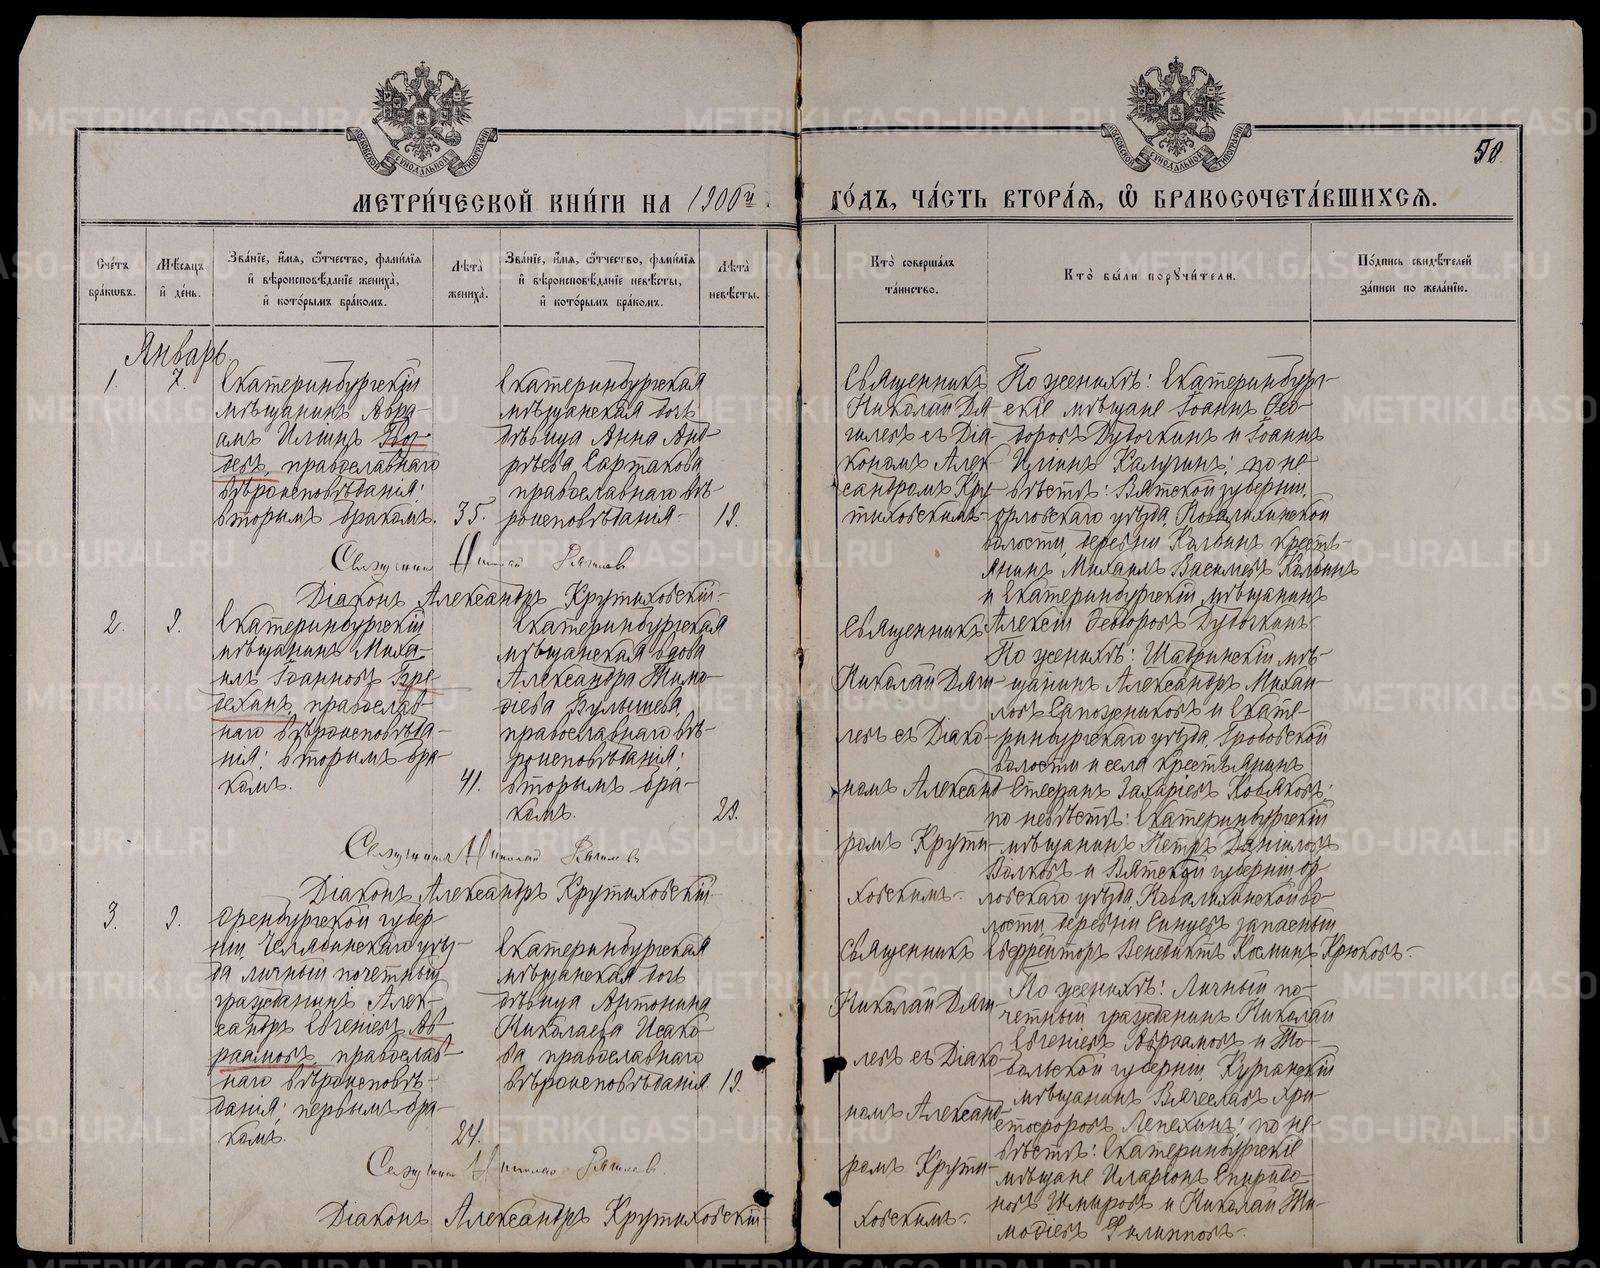 МЕТРИ́ЧЕСКОЙ КНИ́ГИ НА 1900й
ГО́ДЪ, ЧА́СТЬ ВТОРА́Я, Ѽ БРАКОСОЧЕТА́ВШИХСЯ.
50
Сче́тъ бра́кωвъ.
Мѣ́сяцъ и де́нь.
Зва́нїе, и́мя, ѻ́тчество, фами́лїя и вѣроисповѣ́данїе жениха̀, и кото́рымъ бра́комъ.
Лѣта̀ жениха̀.
Зва́нїе, и́мя, ѻ́тчество, фами́лїя и вѣроисповѣ́данїе невѣ́сты, и кото́рымъ бра́комъ.
Лѣта̀ невѣ́сты.
Кто̀ соверша́лъ та́инство.
Кто̀ бы́ли порꙋчи́тели.
По́дпись свидѣ́телей за́писи по жела́нїю.
Январь.
1. 7.
Екатеринбургскій
мѣщанинъ Авра-
амъ Иліинъ
православнаго
вѣроисповѣданія;
вторымъ бракомъ. 35.
Екатеринбургская
мѣщанская дочь
дѣвица Анна Анд-
реева Сартакова
православнаго вѣ-
роисповѣданія 19.
Священникъ
Николай Дя-
гилевъ съ Діа-
кономъ Алек-
сандромъ Кру-
тиховскимъ
По женихѣ: Екатеринбург-
скіе мѣщане Іоаннъ Ѳео-
доровъ Дубочкинъ и Іоаннъ
Иліинъ Калугинъ; по не-
вѣстѣ: Вятской губерніи,
орловскаго уѣзда,
волости, деревни Колбинъ кресть-
янинъ Михаилъ Васильевъ Колбинъ
и Екатеринбургскій мѣщанинъ
Алексій Ѳеодоровъ Дубочкинъ
Священникъ Николай Дягилевъ
Діаконъ Александръ Крутиховскій
2. 9.
Екатеринбургскій
мѣщанинъ Миха-
илъ Іоанновъ Бре-
дехинъ, православ-
наго вѣроисповѣда-
нія; вторымъ бра-
комъ. 41.
Екатеринбургская
мѣщанская вдова
Александра Тимо-
ѳеева Булышева,
православнаго вѣ-
роисповѣданія;
вторымъ бра-
комъ. 29.
Священникъ
Николай Дяги-
левъ съ Діако-
номъ Александ-
ромъ Крути-
ховскимъ.
По женихѣ: Шадринскій мѣ-
щанинъ Александръ Михаи-
ловъ Сапожниковъ и Екате-
ринбургскаго уѣзда, Гробовской
волости и села крестьянинъ
Стефанъ Захаріевъ Ковяковъ;
по невѣстѣ: Екатеринбургскій
мѣщанинъ Петръ Даніиловъ
Волковъ и Вятской губерніи ор-
ловскаго уѣзда, во-
лости, деревни запасный
Ефрейторъ Венедиктъ Косминъ Крюковъ.
Священникъ Николай Дягилевъ
Діаконъ Александръ Крутиховскій
3. 9.
Оренбургской губер-
ніи, Челябинскаго уѣз-
да личный почетный
гражданинъ Алек-
сандръ Евгеніевъ Ав-
раамовъ, православ-
наго вѣроисповѣ-
данія; первымъ бра-
комъ. 24.
Екатеринбургская
мѣщанская дочь
дѣвица Антонина
Николаева Исако-
ва православнаго
вѣроисповѣданія 19.
Священникъ
Николай Дяги-
левъ съ Діако-
номъ Александ-
ромъ Крути-
ховскимъ.
По женихѣ: Личный по-
четный гражданинъ Николай
Евгеніевъ Авраамовъ и То-
больской губерніи, Курганскій
мѣщанинъ Вячеславъ Хри-
стофоровъ Лепехинъ; по не-
вѣстѣ: Екатеринбургскіе
мѣщане Иларіонъ Спиридо-
новъ Шмыровъ и Николай Ти-
моѳіевъ Филипповъ.
Священникъ Николай Дягилевъ
Діаконъ Александръ Крутиховскій